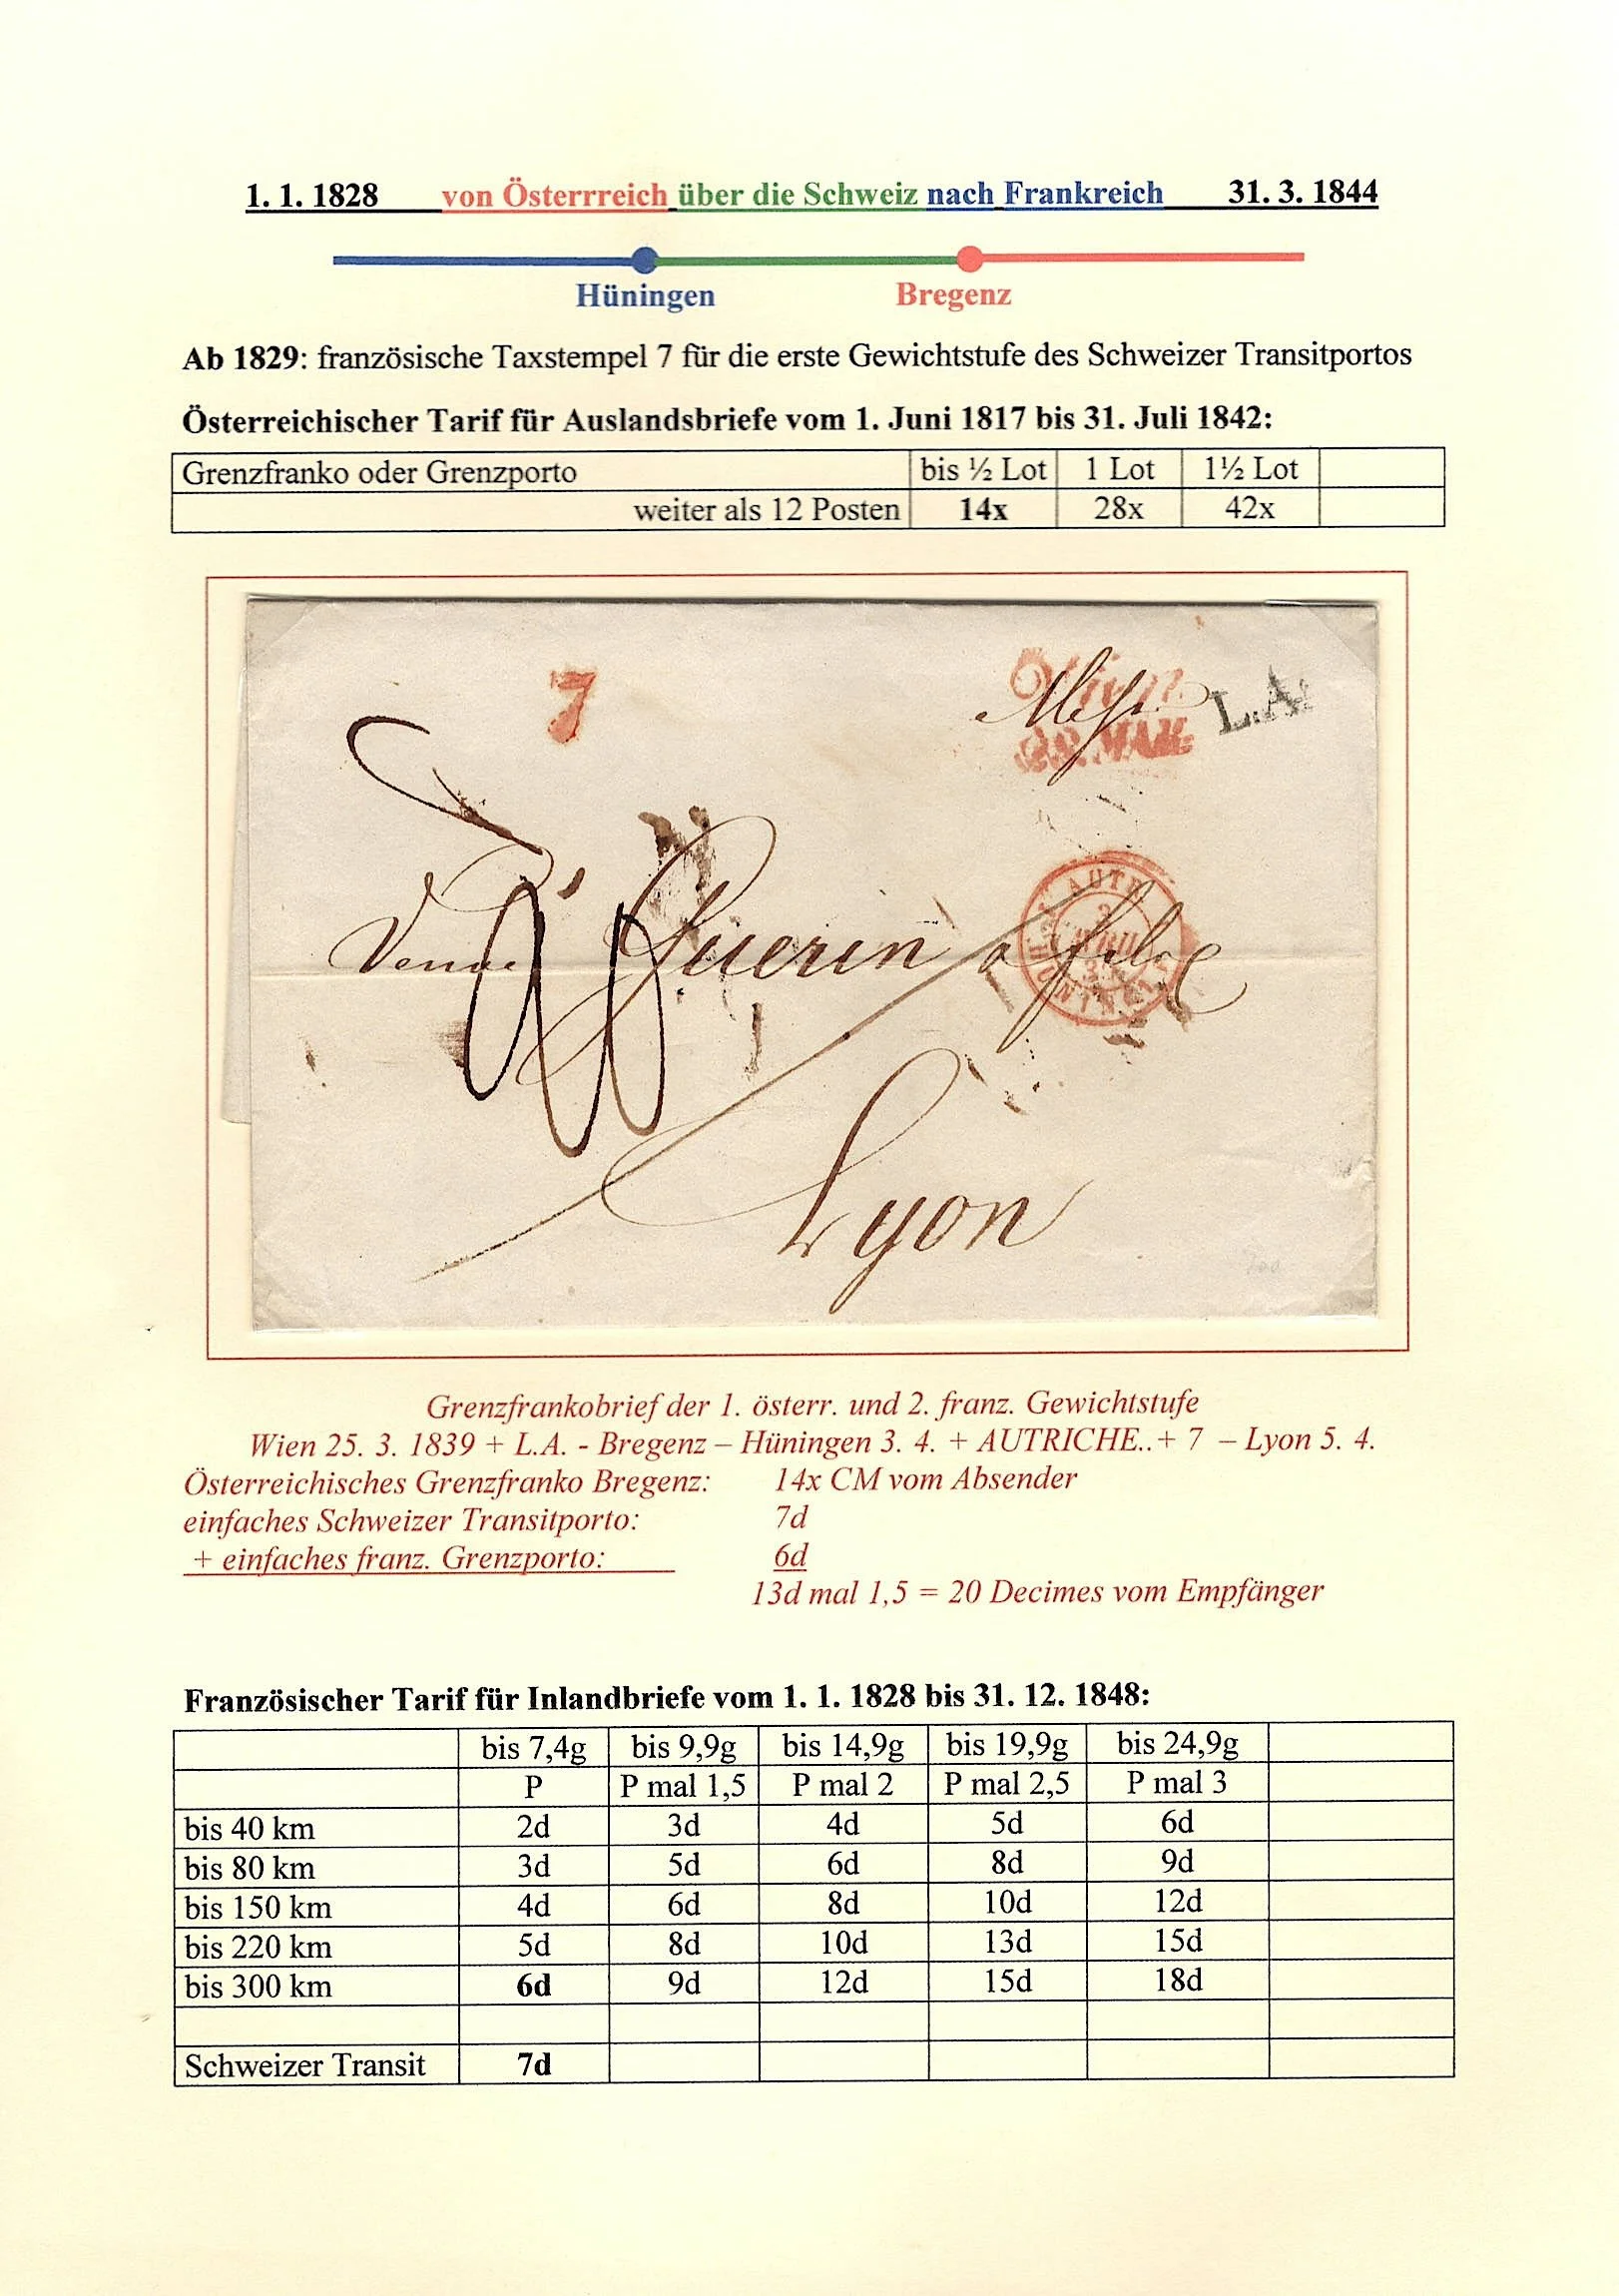 1. 1. 1828 von Österrreich über die Schweiz nach Frankreich 31. 3. 1844
Hüningen Bregenz
Ab 1829: französische Taxstempel 7 für die erste Gewichtstufe des Schweizer Transitportos
Österreichischer Tarif für Auslandsbriefe vom 1. Juni 1817 bis 31. Juli 1842:
Grenzfranko oder Grenzporto bis ½ Lot 1 Lot 1½ Lot
weiter als 12 Posten 14x 28x 42x
7
Wien
MAR:
Messr
L.A.
AUTR
3
Guerin & fils
Lyon
Grenzfrankobrief der 1. österr. und 2. franz. Gewichtstufe
Wien 25. 3. 1839 + L.A. - Bregenz – Hüningen 3. 4. + AUTRICHE..+ 7 – Lyon 5. 4.
Österreichisches Grenzfranko Bregenz: 14x CM vom Absender
einfaches Schweizer Transitporto: 7d
+ einfaches franz. Grenzporto: 6d
13d mal 1,5 = 20 Decimes vom Empfänger
Französischer Tarif für Inlandbriefe vom 1. 1. 1828 bis 31. 12. 1848:
bis 7,4g bis 9,9g bis 14,9g bis 19,9g bis 24,9g
P P mal 1,5 P mal 2 P mal 2,5 P mal 3
bis 40 km 2d 3d 4d 5d 6d
bis 80 km 3d 5d 6d 8d 9d
bis 150 km 4d 6d 8d 10d 12d
bis 220 km 5d 8d 10d 13d 15d
bis 300 km 6d 9d 12d 15d 18d
Schweizer Transit 7d